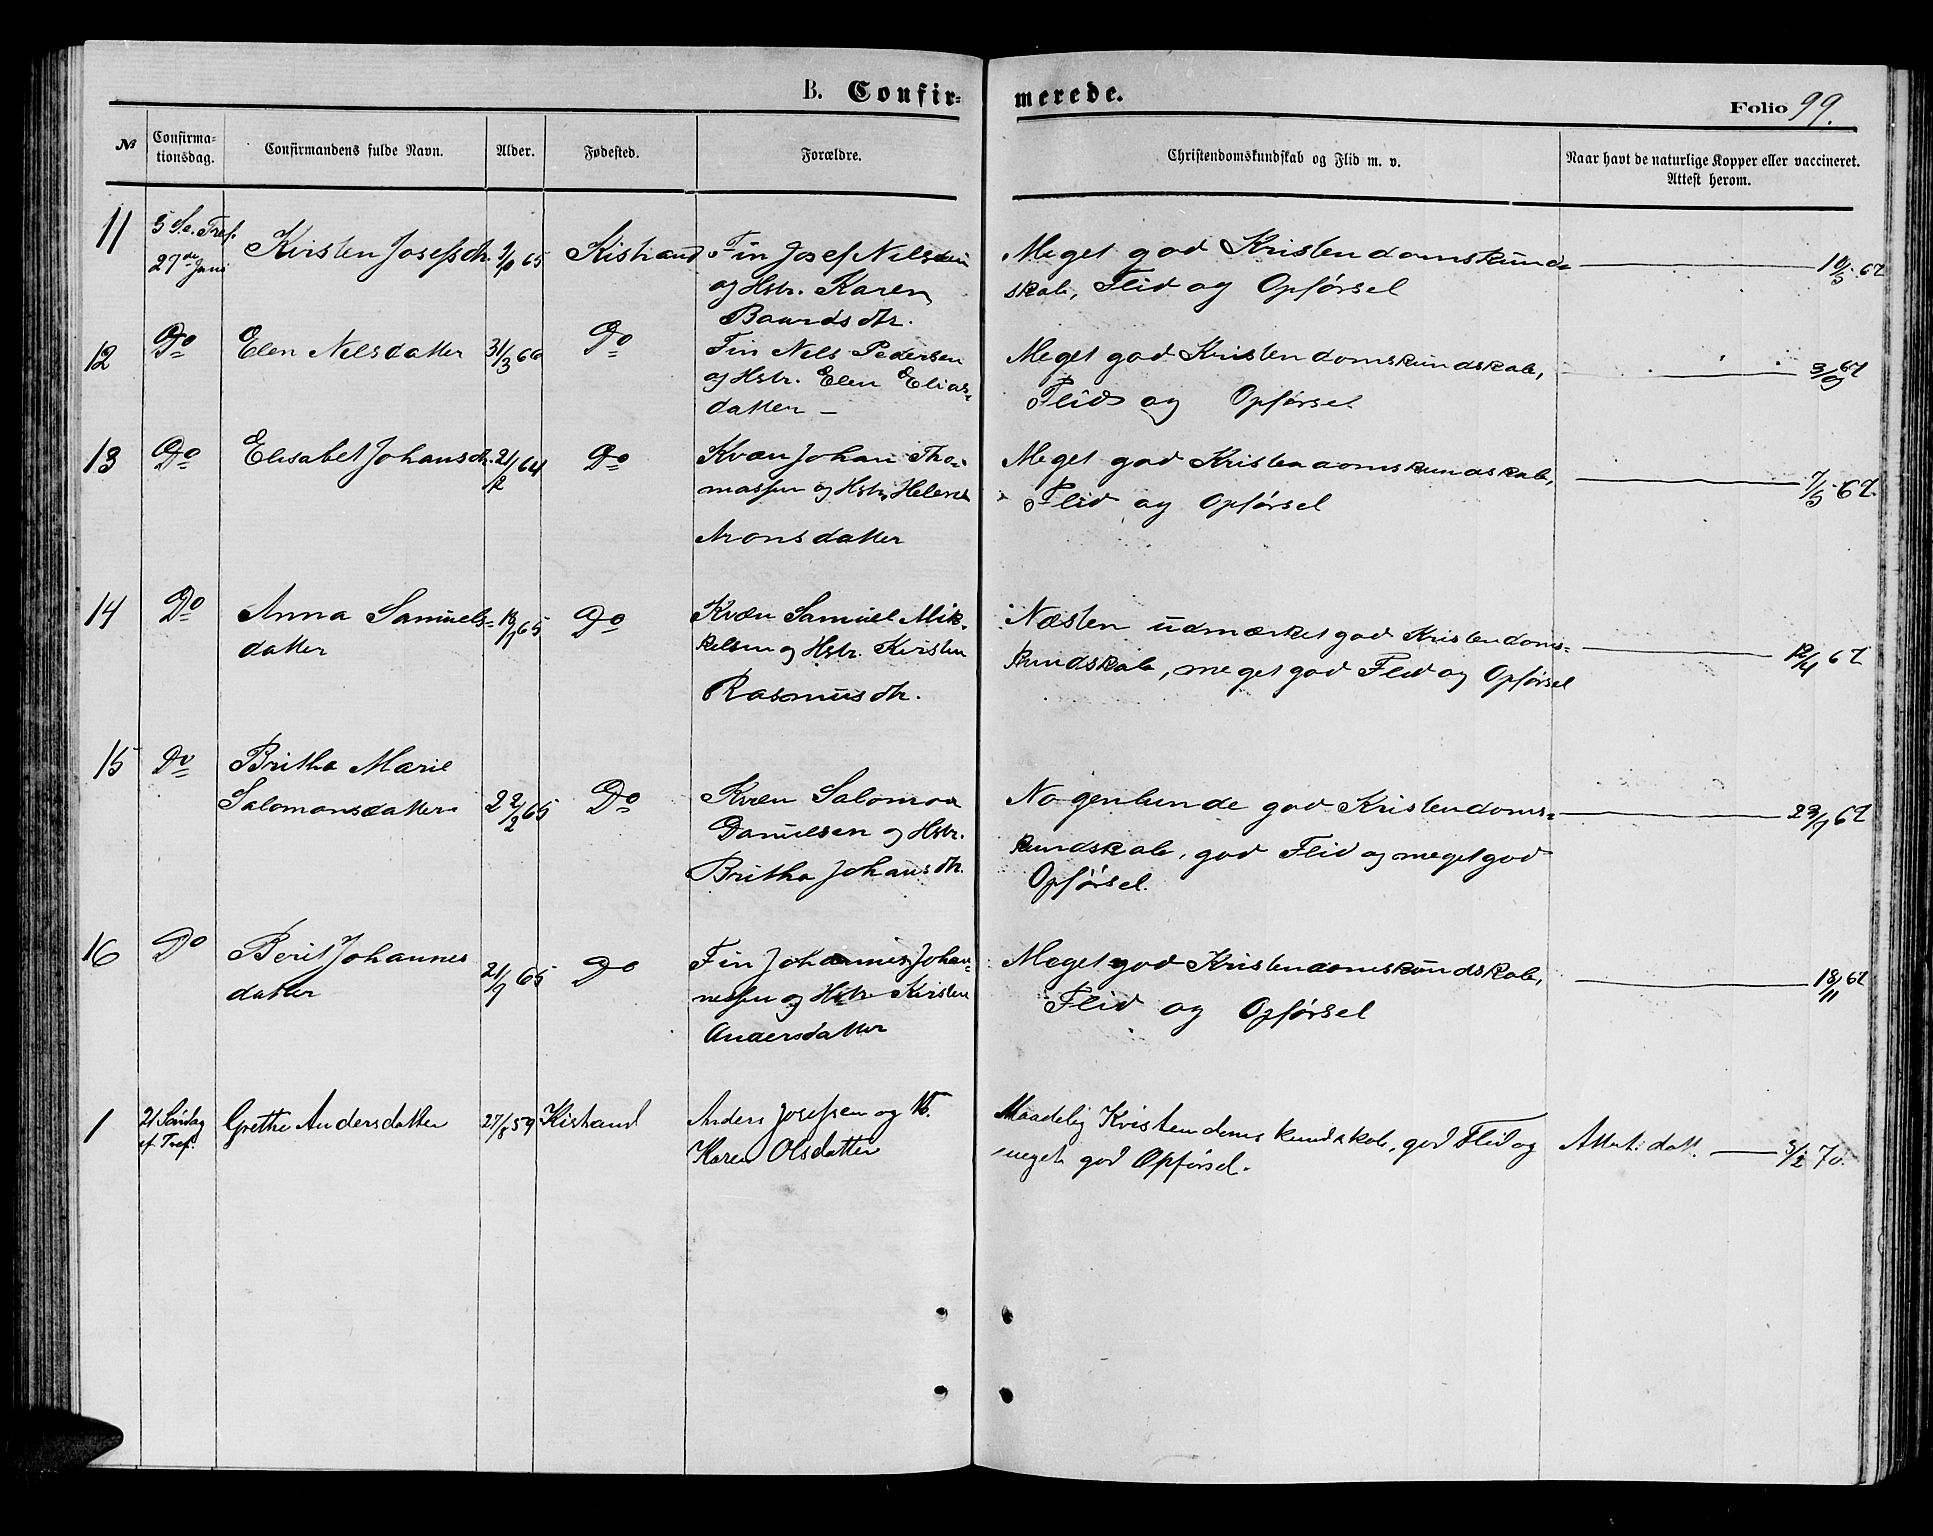 B. Confir-
merede.
Folio 99.
№
Confirma-
tionsdag.
Confirmandens fulde Navn.
Alder.
Fødested.
Forældre.
Christendomskundskab og Flid m. v.
Naar havt de naturlige Kopper eller vaccineret.
Attest herom.
11
5 S.e. Tref.
27de Juni
Kirsten Josefsdtr.
65
Kistrand
Fin Josef Nilsen
og Hstr. Karen
Baardsdtr.
Meget god Kristendomskund-
skab, Flid og Opførsel
67
12
Do
Elen Nilsdatter
31/3 66
Do
Fin Nils Pedersen
og Hstr. Elen Elias-
datter –
Meget god Kristendomskundskab,
Flid og Opførsel
3/9 67
13
Do
Elisabet Johansdtr.
21/12 64
Do
Kvæn Johan Tho-
massen og Hstr. Helene
Aronsdatter
Meget god Kristendomskundskab,
Flid og Opførsel
7/9 67.
14
Do
Anna Samuels-
datter
65
Do
Kvæn Samuel Mik-
kelsen og Hstr. Kirsten
Rasmusdtr.
Næsten udmærket god Kristendoms-
kundskab, meget god Flid og Opførsel
67
15
Do
Britha Marie
Salomonsdatter
22/2 65
Do
Kvæn Salomon
Danielsen og Hstr.
Britha Johansdtr.
Nogenlunde god Kristendoms-
kundskab, god Flid og meget god
Opførsel.
23/9 67
16
Do
Berit Johannes
datter
21/9 65
Do
Fin Johannes Johan-
nessen og Hstr. Kirsten
Andersdatter
Meget god Kristendomskundskab,
Flid og Opførsel
18/11 67
1
21 Søndag
ef. Tref.
Grethe Andersdatter
27/8 59
Kistrand
Anders Josefsen og H.
Karen Olsdatter
Maadelig Kristendomskundskab, god Flid og
meget god Opførsel.
Attest. dat. 3/2 70.